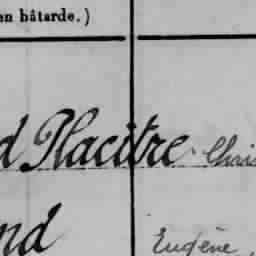 en bâtarde.)
d Placitre Chris
nd Eugène,